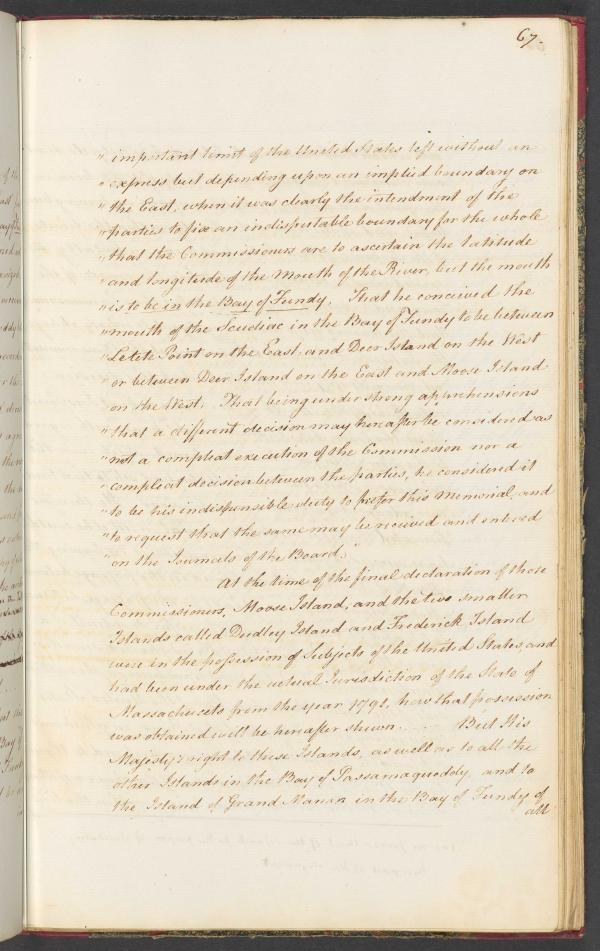 67.
" important limit of the United States left without an
" express but depending upon an implied boundary on
" the East, when it was clearly the intendment of the
" parties to fix an indisputable boundary for the whole
" that the Commissioners are to ascertain the latitude
" and longitude of the Mouth of the River, but the mouth
" is to be in the Bay of Fundy. That he conceived the
" mouth of the Scudiac in the Bay of Fundy to be between
" Letete Point on the East, and Deer Island on the West
" or between Deer Island on the East and Moose Island
" on the West. That being under strong apprehensions
" that a different decision may hereafter be considered as
" not a compleat execution of the Commission nor a
" compleat decision between the parties, he considered it
" to be his indispensible duty to prefer this Memorial, and
" to request that the same may be received and entered
" on the Journals of the Board."
At the time of the final declaration of those
Commissioners, Moose Island, and the two smaller
Islands called Dudley Island and Frederick Island
were in the possession of Subjects of the United States, and
had been under the actual Jurisdiction of the State of
Massachusets from the year 1791, how that possession
was obtained will be hereafter shewn. .... But His
Majesty's right to these Islands, as well as to all the
other Islands in the Bay of Passamaquoddy, and to
the Island of Grand Manan in the Bay of Fundy of
all